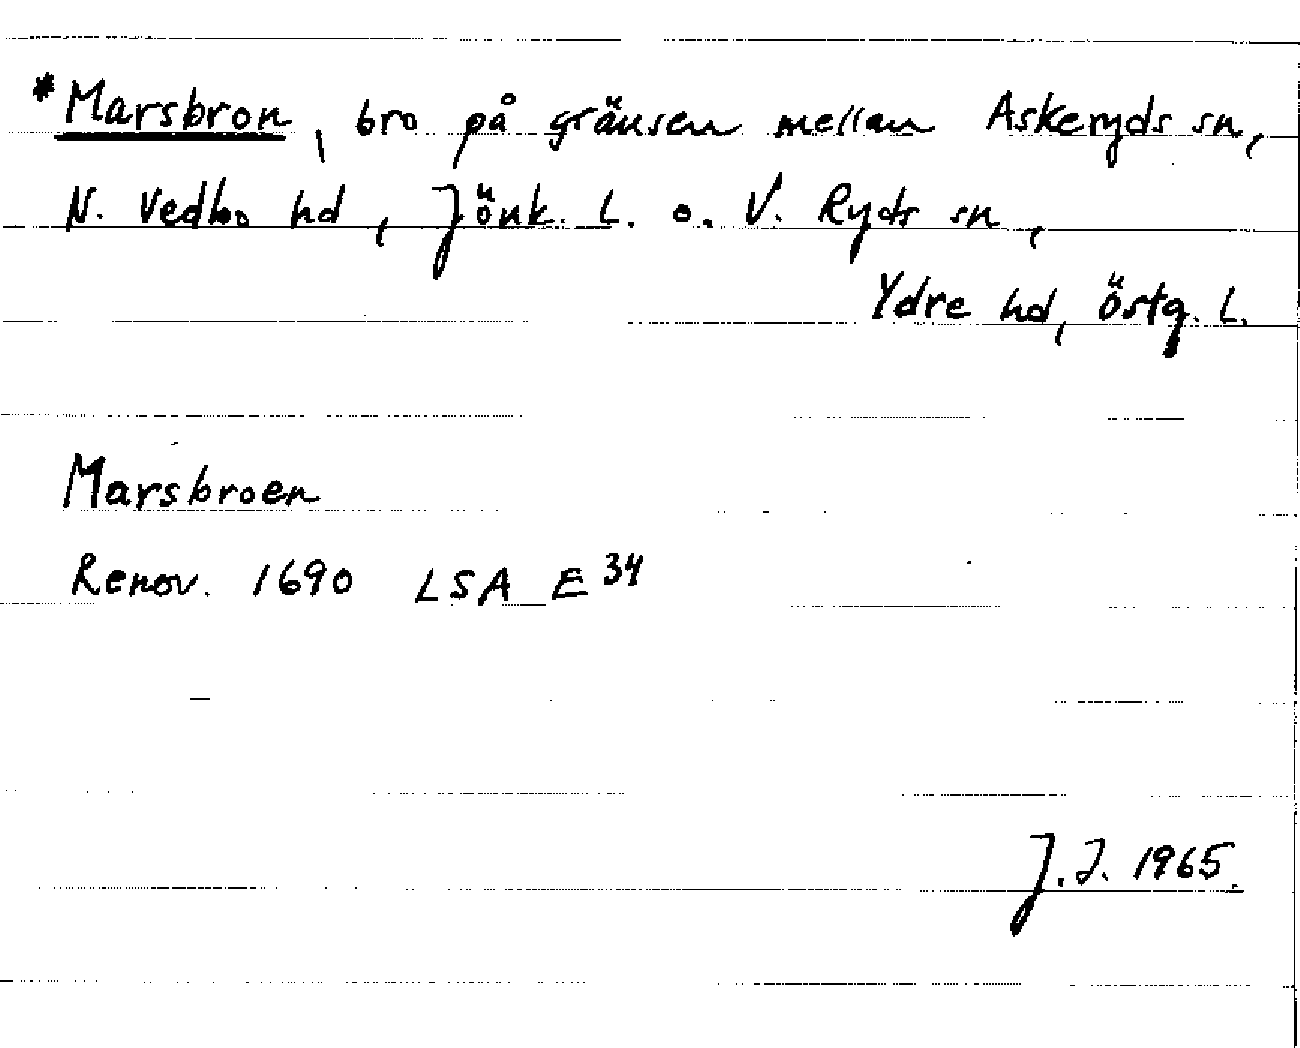 *Marsbron, bro på gränsen mellan Askeryds sn,
N. Vedbo hd, Jönk. L. o. V. Ryds sn,
Ydre hd, Östg. L.
Marsbroen
Renov. 1690 LSA E 34
J.I. 1965.